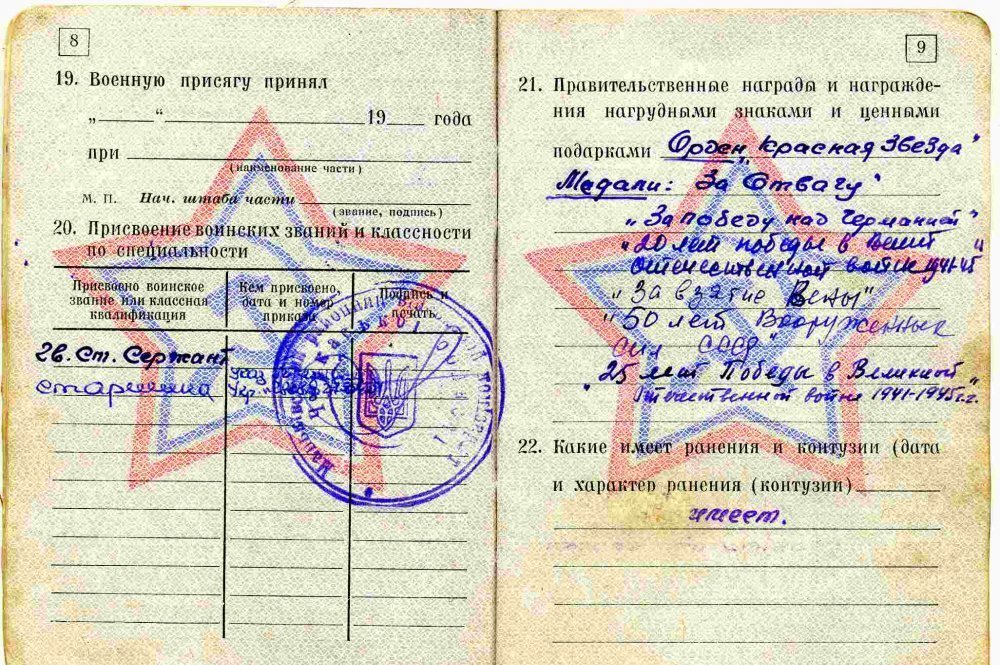 8
19. Военную присягу принял
„ “ 19 года
при
(наименование части)
М. П. Нач. штаба части
(звание, подпись)
20. Присвоение воинских званий и классности
по специальности
Присвоено воинское
звание или классная
квалификация
Кем присвоено,
дата и номер
приказа
Подпись и
печать
гв. Ст. Сержант
старшина
9
21. Правительственные награды и награжде-
ния нагрудными знаками и ценными
подарками Орден „Красная Звезда"
Медали: За Отвагу"
„За победу над Германией"
"20 лет победы в Велик
Отечественной войне 1941-45"
"За взятие Вены"
"50 лет Вооруженных
сил СССР"
"25 лет Победы в Великой
Отечественной войне 1941-1945г.г."
22. Какие имеет ранения и контузии (дата
и характер ранения (контузии)
имеет.